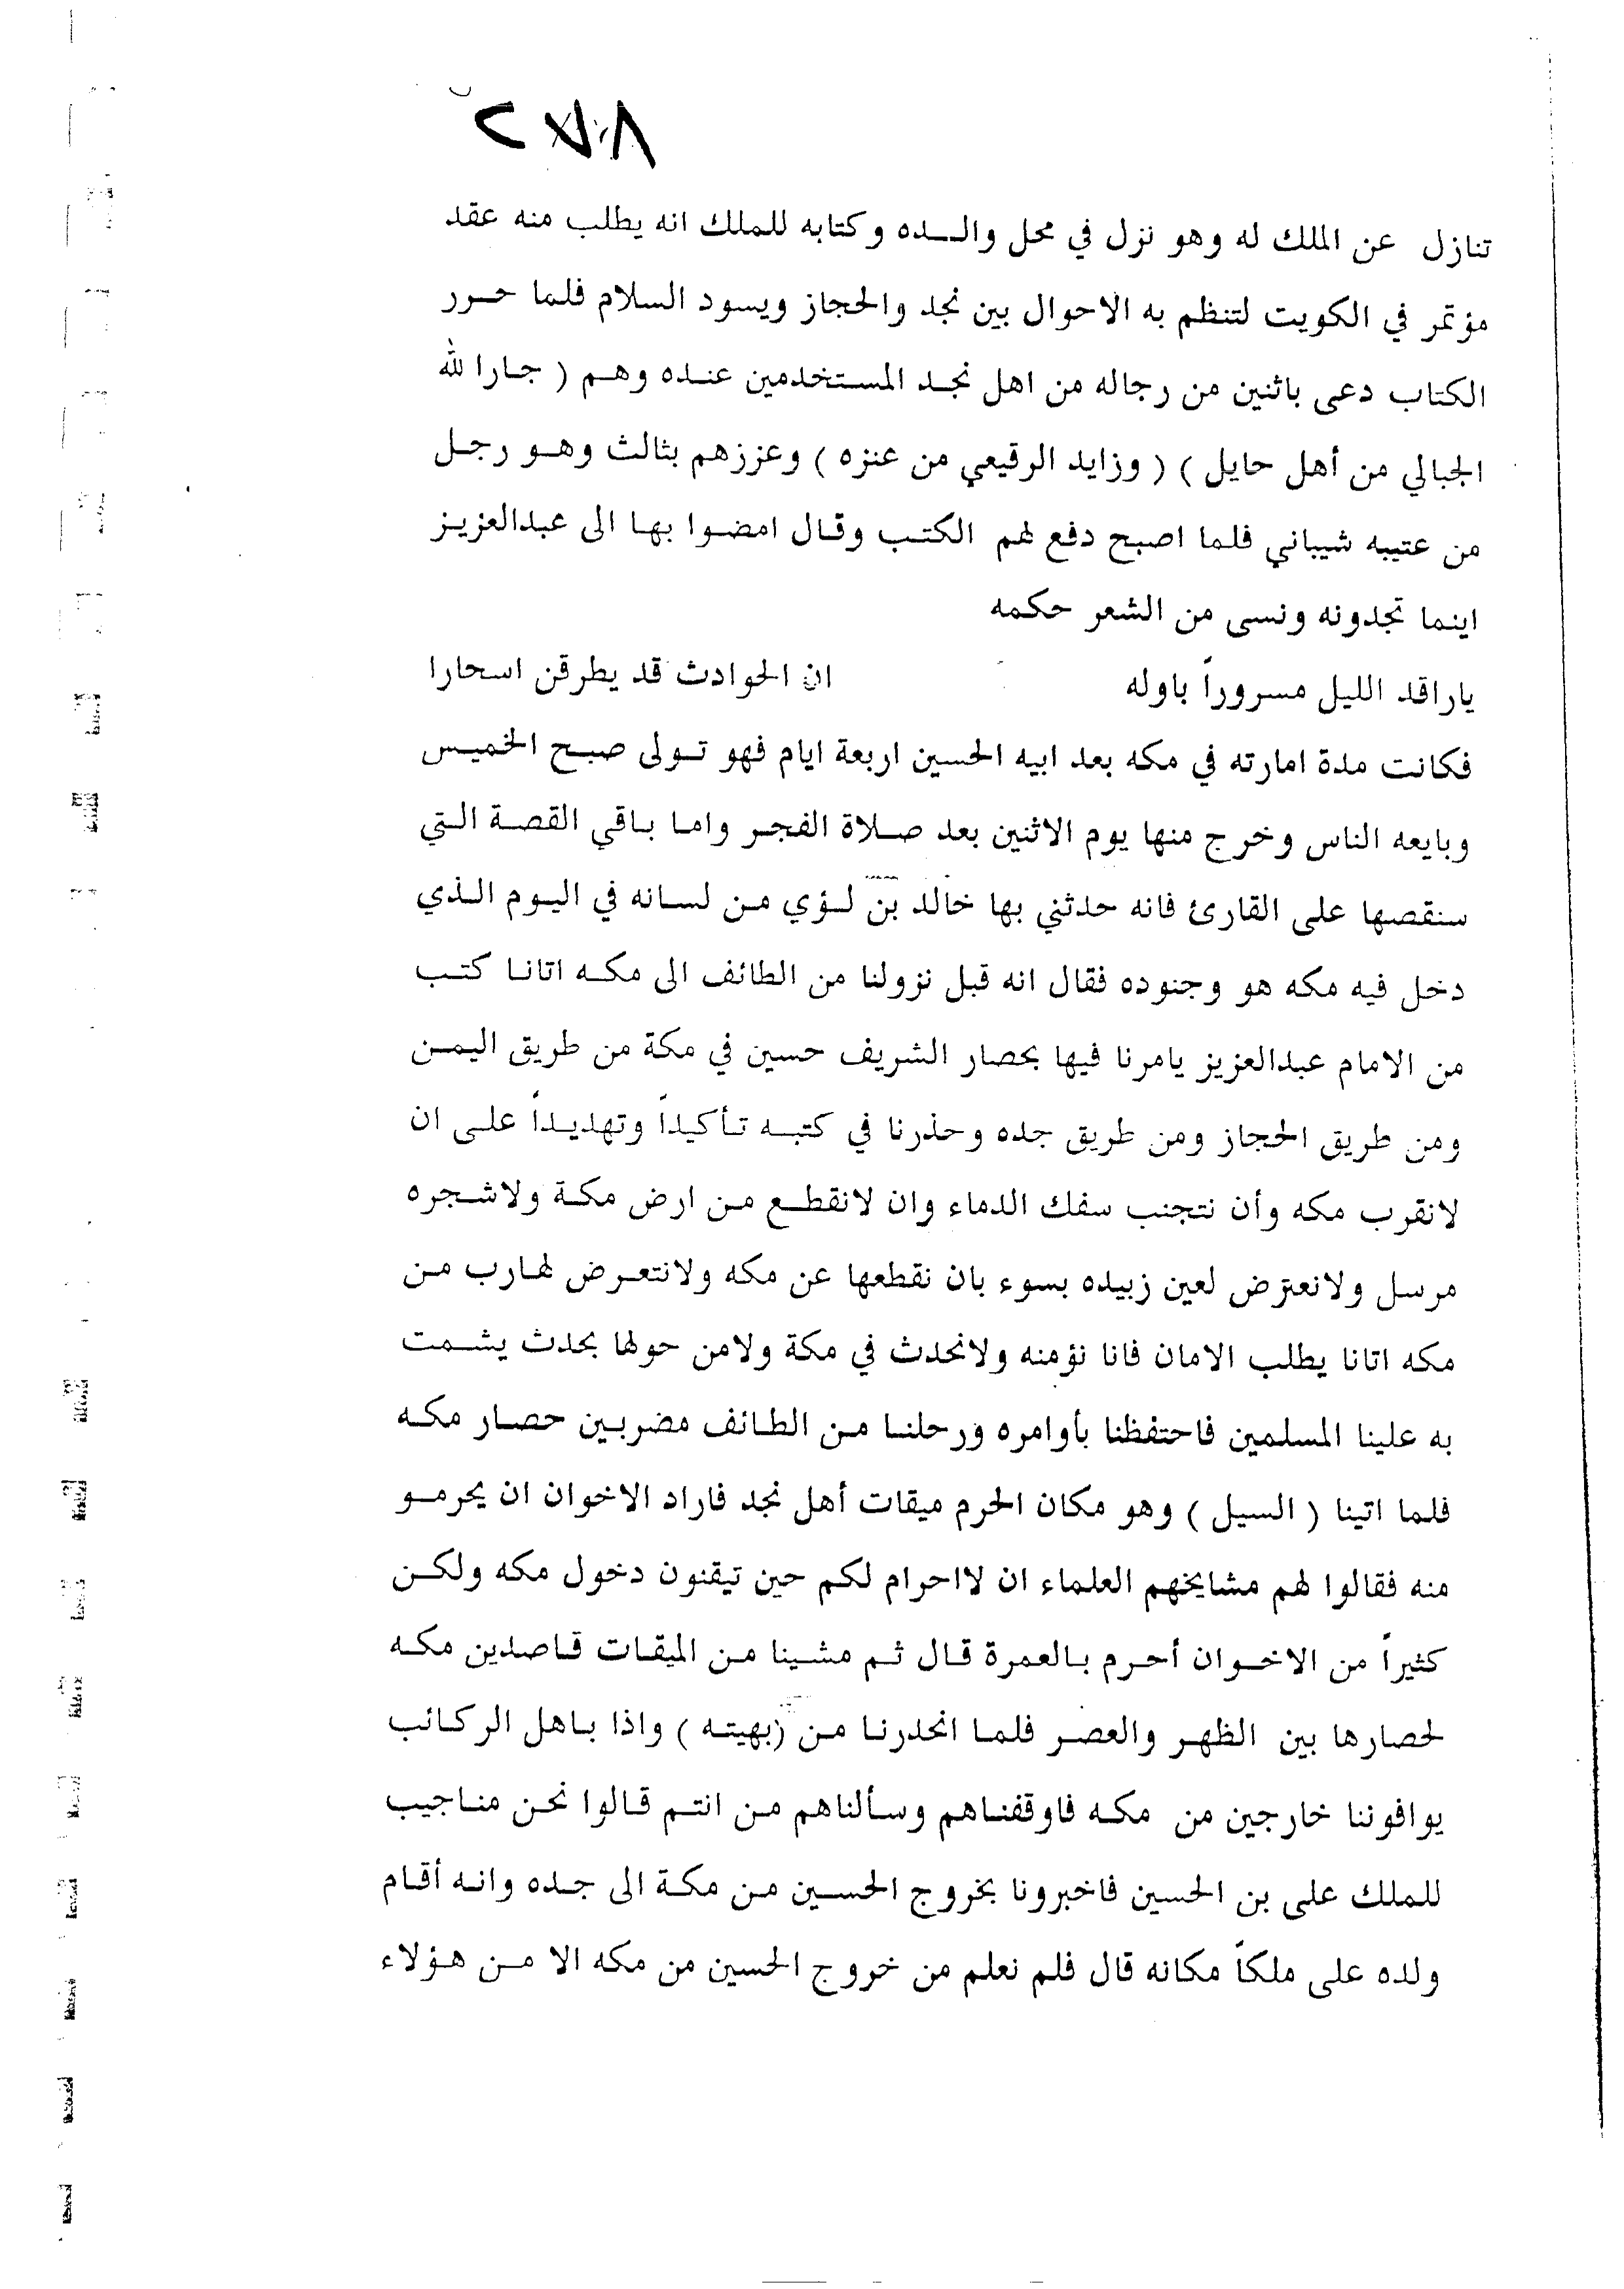 تنازل عن الملك له وهو نزل في محل والـــده وكتابه للملك انه يطلب منه عقد
مؤتمر في الكويت لتنظم به الاحوال بين نجد والحجاز ويسود السلام فلما حـرر
الكتاب دعى باثنين من رجاله من اهل نجـد المستخدمين عنـده وهـم ( جـارا لله
الجبالي من أهل حايل ) ( وزايد الرقيعي من عنزه ) وعززهم بثالث وهـو رجـل
من عتيبه شيباني فلما اصبح دفع لهم الكتـب وقـال امضـوا بهـا الى عبدالعزيـز
اينما تجدونه ونسى من الشعر حكمه
ياراقد الليل مسروراً باوله ان الحوادث قد يطرقن اسحارا
فكانت مدة امارته في مكه بعد ابيه الحسين اربعة ايام فهو تـولى صبـح الخميـس
وبايعه الناس وخرج منها يوم الاثنين بعد صـلاة الفجـر وامـا بـاقي القصـة الـتي
سنقصها على القارئ فانه حدثني بها خالد بن لـؤي مـن لسـانه في اليـوم الـذي
دخل فيه مكه هو وجنوده فقال انه قبل نزولنا من الطائف الى مكـه اتانـا كتـب
من الامام عبدالعزيز يامرنا فيها بحصار الشريف حسين في مكة من طريق اليمـن
ومن طريق الحجاز ومن طريق جده وحذرنا في كتبـه تـأكيداً وتهديـداً علـى ان
لانقرب مكه وأن نتجنب سفك الدماء وان لانقطـع مـن ارض مكـة ولاشـجره
مرسل ولانعترض لعين زبيده بسوء بان نقطعها عن مكه ولانتعـرض لهـارب مـن
مكه اتانا يطلب الامان فانا نؤمنه ولانحدث في مكة ولامن حولها بحدث يشـمت
به علينا المسلمين فاحتفظنا بأوامره ورحلنـا مـن الطـائف مضربـين حصـار مكـه
فلما اتينا ( السيل ) وهو مكان الحرم ميقات أهل نجد فاراد الاخوان ان يحرمـو
منه فقالوا لهم مشايخهم العلماء ان لااحرام لكم حين تيقنون دخول مكه ولكـن
كثيراً من الاخـوان أحـرم بـالعمرة قـال ثـم مشـينا مـن الميقـات قـاصدين مكـه
لحصارها بين الظهـر والعصـر فلمـا انحدرنـا مـن (بهيتـه ) واذا بـاهل الركـائب
يوافوننا خارجين من مكـه فاوقفنـاهم وسـألناهم مـن انتـم قـالوا نحـن منـاجيب
للملك على بن الحسين فاخبرونا بخروج الحسـين مـن مكـة الى جـده وانـه أقـام
ولده على ملكاً مكانه قال فلم نعلم من خروج الحسين من مكه الا مـن هـؤلاء